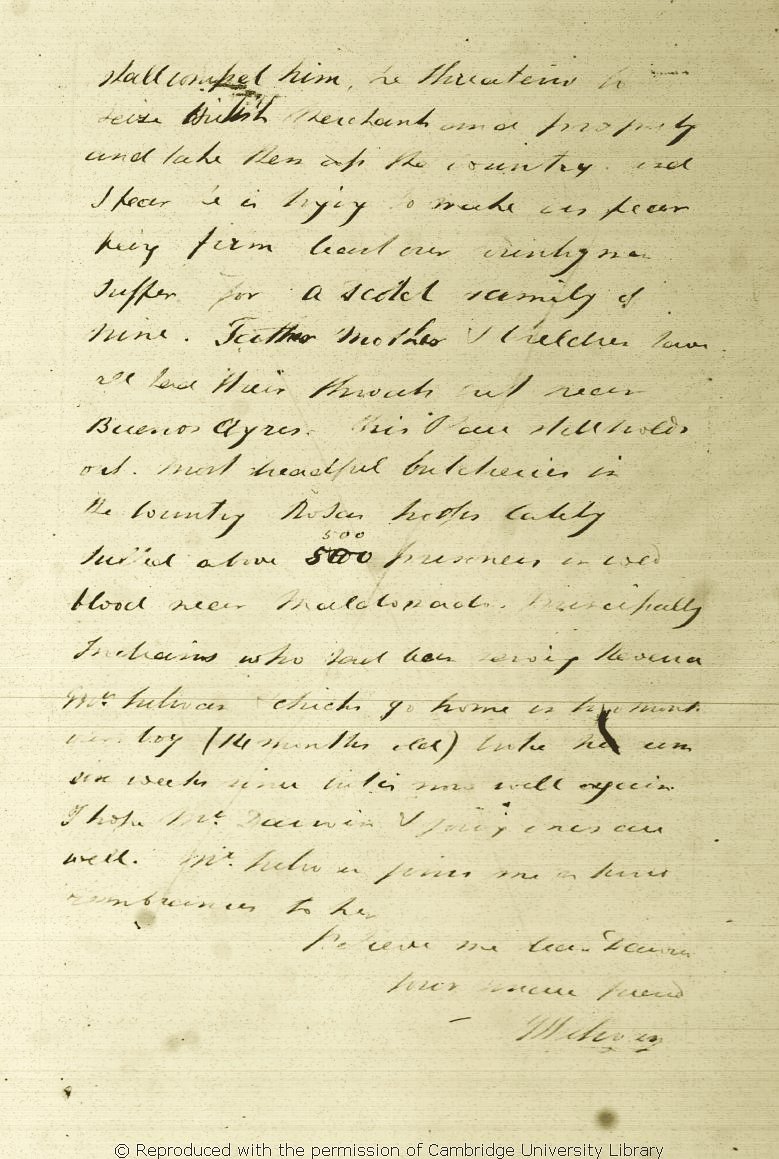 shall compel him, he threatens to
seize British Merchants and property
and take them up the country. and
I fear he is trying to make us fear
being firm least our countrymen
suffer for a scotch family of
nine. Father Mother & Children have
all had their throats cut near
Buenos Ayres. this Place still holds
out. most dreadful butcheries in
the Country Rosas troops lately
killed above 500
500 prisoners in cold
blood near Maldonado. principally
Indians who had been serving Rivera
Mrs. Sulivan & chicks go home in two months
our boy (14 months old) broke his arm
six weeks since but is now well again.
I hope Mrs. Darwin & young ones are
well. Mrs. Sulivan joins me in kind
remembrances to her
Believe me dear Darwin
your sincere friend
Sulivan
© Reproduced with the permission of Cambridge University Library